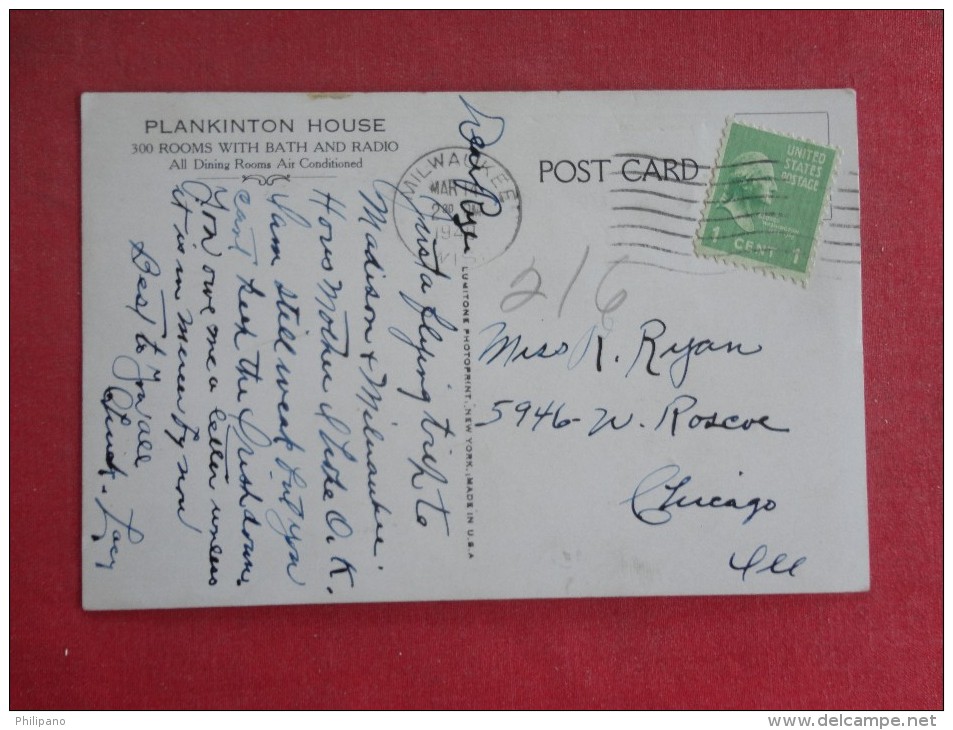 PLANKINTON HOUSE
300 ROOMS WITH BATH AND RADIO
All Dining Rooms Air Conditioned
POST CARD
MILWAUKEE
MAR
194
WIS
UNITED
STATES
POSTAGE
1 CENT 1
216
LUMITONE PHOTOPRINT. NEW YORK. (MADE IN U.S.A
Dear
Just a flying trip to
Madison & Milwaukee
Hows Mother I hope O.K.
I am still weak but you
cant keep the Irish down.
You owe me a letter unless
it is in by now
Best to You all
Miss R. Ryan
5946-W. Roscoe
Chicago
Ill
Philipano
www.delcampe.net